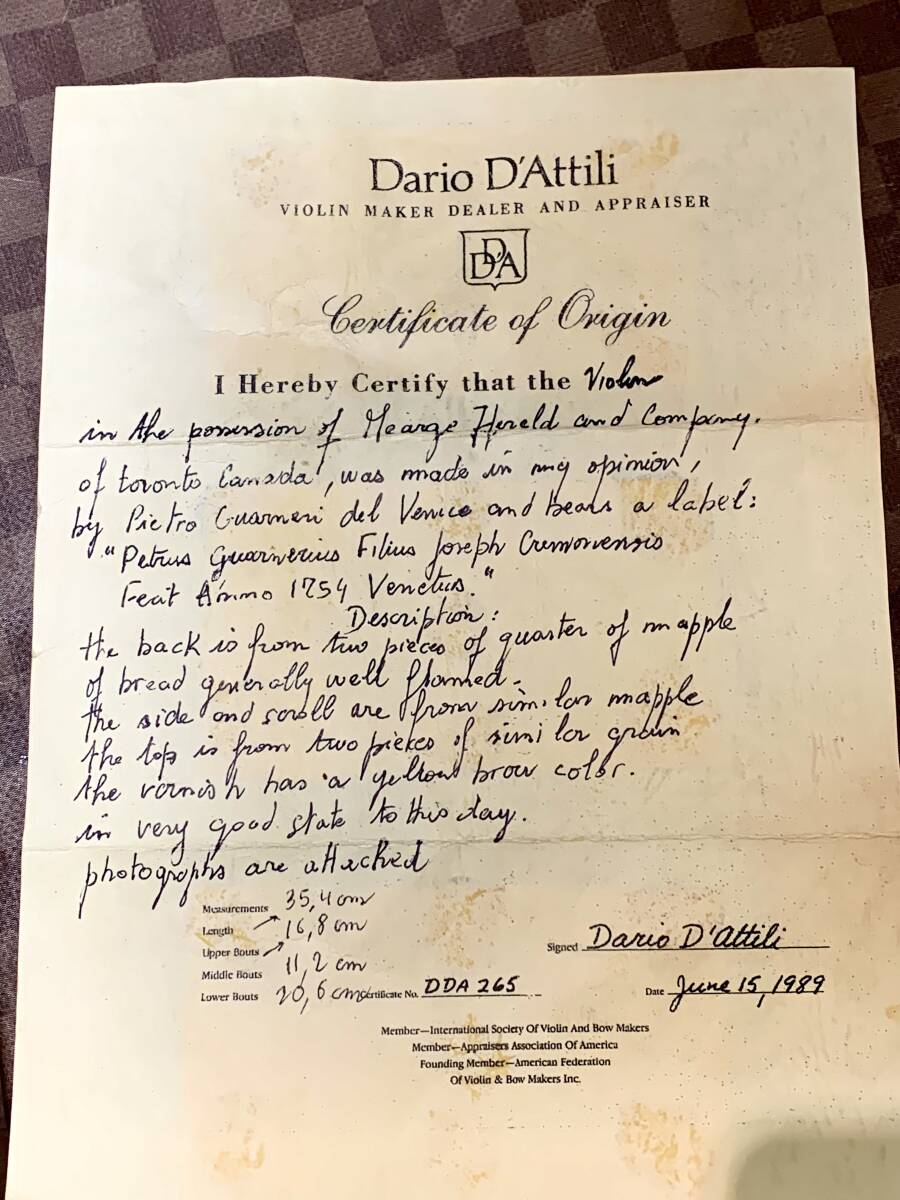 Dario D'Attili
VIOLIN MAKER DEALER AND APPRAISER
DD'A
Certificate of Origin
I Hereby Certify that the Violin
in the possession of Hearge Herald and Company.
of toronto Canada, was made in my opinion,
by Pietro Guarneri del Venice and bears a label:
"Petrus Guarnerius Filius Joseph Cremonensis
Fecit Anno 1754 Venetus."
Description:
the back is from two pieces of quarter of mapple
of bread generally well flamed.
the side and scroll are from similar mapple
the top is from two pieces of similar grain
the varnish has a yellow brow color.
in very good state to this day.
photographs are attached
Measurements 35,4 cm
Length 16,8 cm
Upper Bouts
Middle Bouts 11,2 cm
Lower Bouts 20,6 cm
Certificate No. DDA 265
Signed Dario D'Attili
Date June 15, 1989
Member—International Society Of Violin And Bow Makers
Member—Appraisers Association Of America
Founding Member—American Federation
Of Violin & Bow Makers Inc.